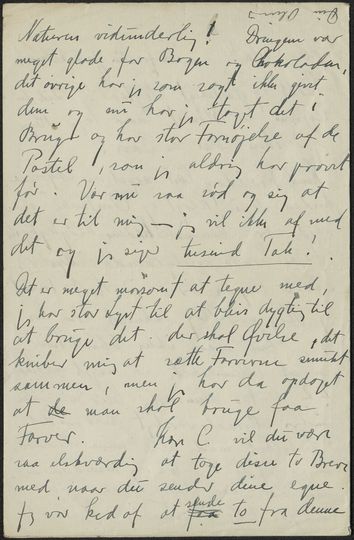 Naturens vidunderlig! Drengene var
meget glade for Bogen og Chokoladen,
det övrige har jeg som sagt ikke givet
dem og nu har jeg taget det i
Brug og har stor Fornöjelse af de
Pastel, som jeg aldrig har prövet
för. Vær nu saa söd og sig at
det er til mig — jeg vil ikke af med
det og jeg siger tusind Tak!
Det er meget morsomt at tegne med,
jeg har stor Lyst til at blive dygtig til
at bruge det. der skal Övelse, det
kniber mig at sætte Farverne smukt
sammen, men jeg har da opdaget
at de man skal bruge faa
Farver. Kære C. vil du være
saa elskværdig at tage disse to Breve
med naar du sender dine egne.
Jeg var ked af at sende to fra denne